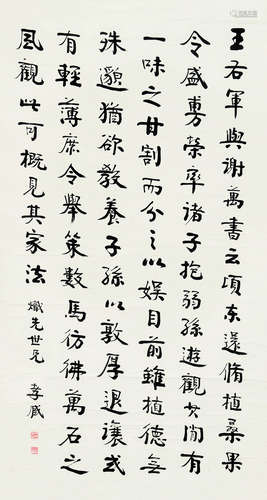 王右軍與謝萬書云頃东還脩植桑果
今盛旉榮率諸子抱弱孫遊觀其間有
一味之甘割而分之以娛目前雖植德無
殊邈猶欲教養子孫以敦厚退讓或
有輕薄庶令舉策數馬彷彿萬石之
風觀此可概見其家法
熾先世兄